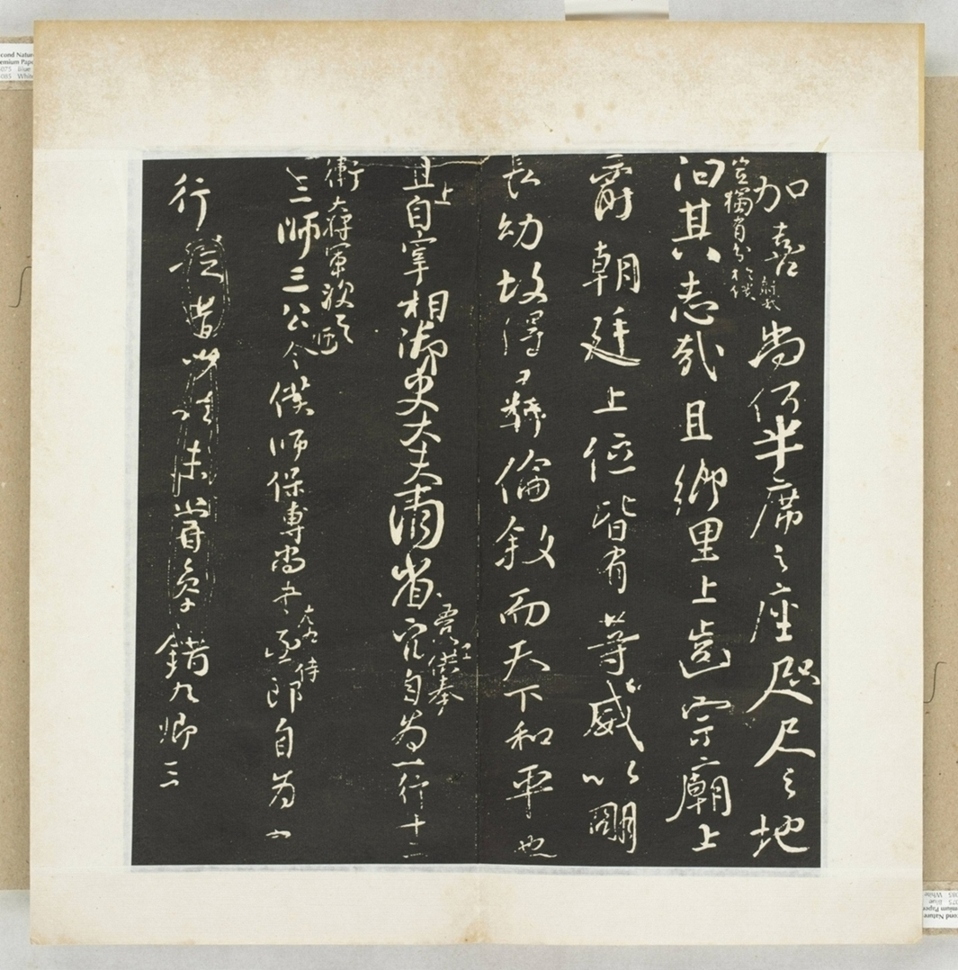 加尚何半席之座咫尺之地
汩其志哉且鄉里上齒宗廟上
爵朝廷上位皆有等威以明
長幼故得彝倫敘而天下和平也
且上自宰相御史大夫兩省供奉官自為一行十二
衛大將軍次之
三師三公令僕師保傅尚書左右丞侍郎自為一
行從昔以來未嘗參錯九卿三